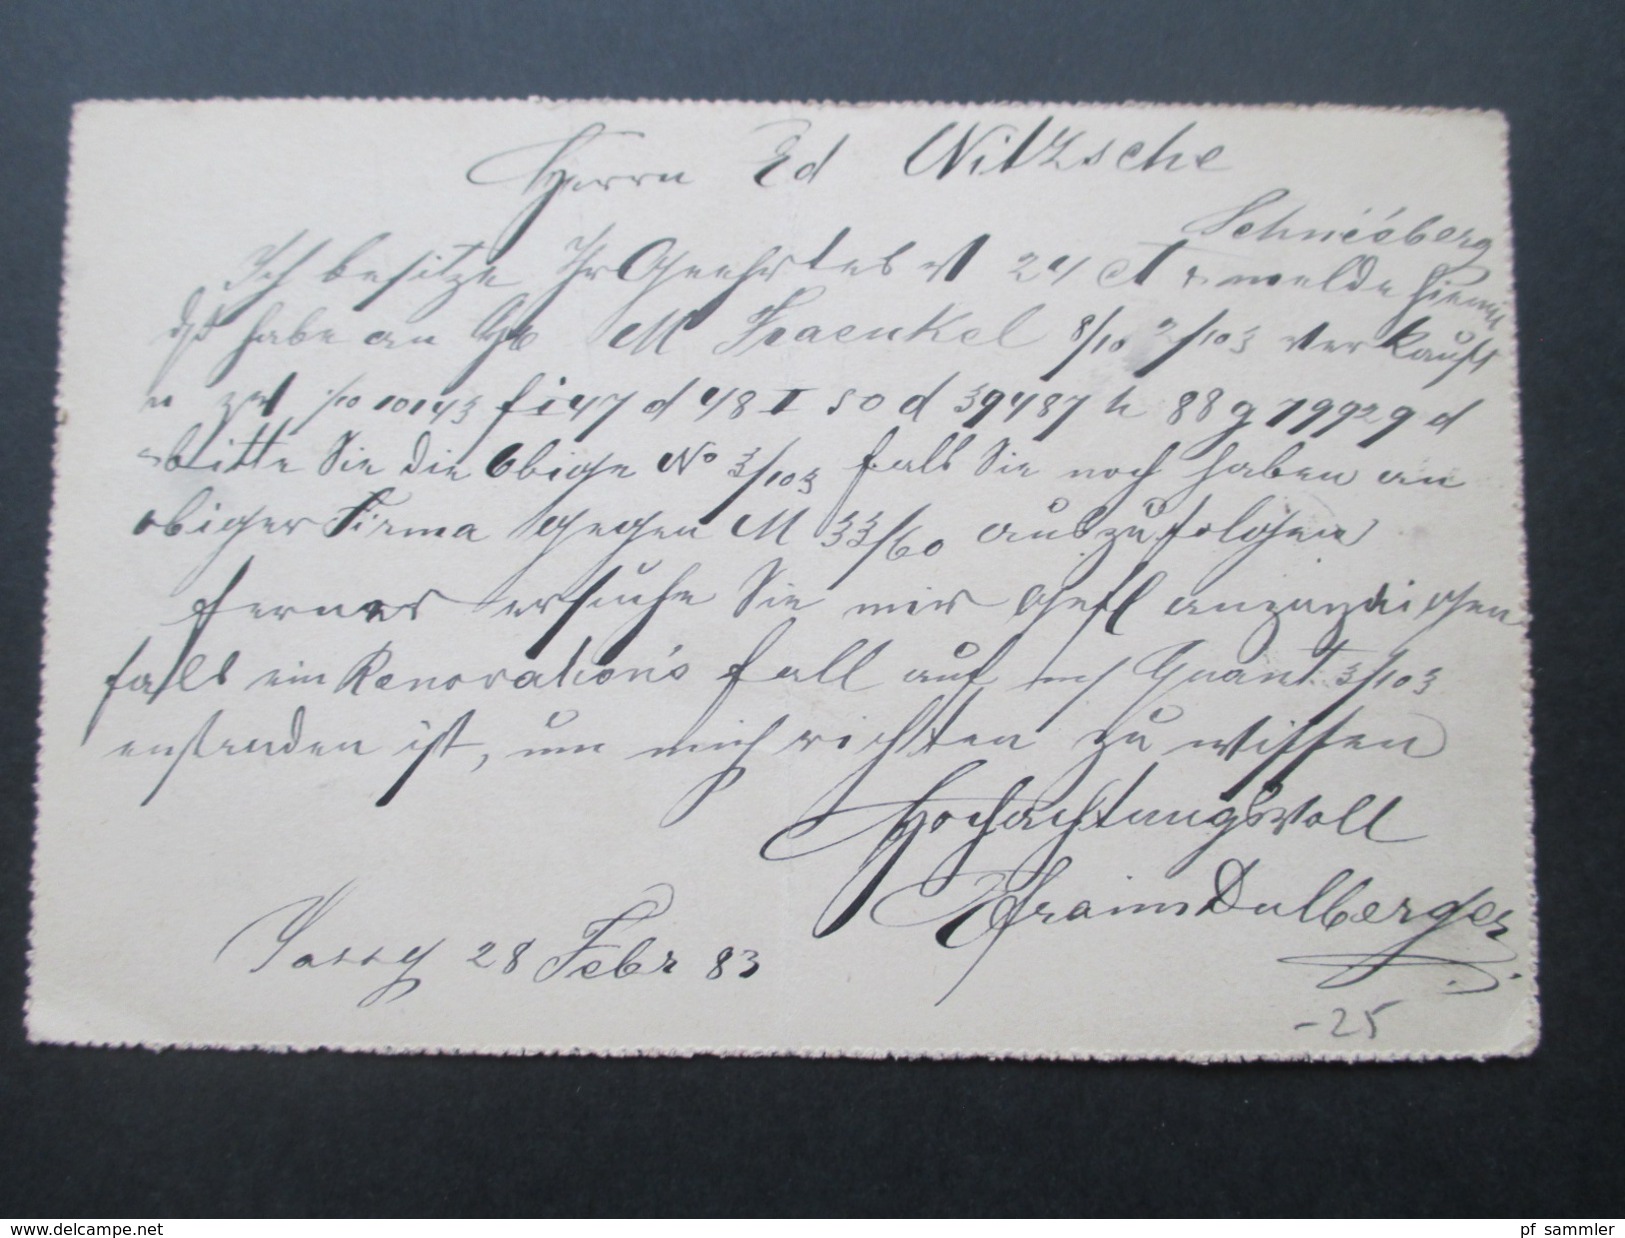 Herrn Ed Nitzsche
Schneeberg
Ich besitze Ihr Geehrtes v 24 ct & melde hiermit
dß habe an M Fraenkel 8/10 2/103 verkauft
u zw 1/10 10143 f i 47 d 48 I 50 d 39487 h 88 g 79929 d
bitte Sie die Obige No 3/103 falls Sie noch haben an
obiger Firma gegen M 33/60 auszufolgen
ferner ersuche Sie mir Gefl anzuzeigen
falls ein Renovation's fall auf m/ Quant. 3/103
enstanden ist, um mich richten zu wissen
Hochachtungsvoll
Efraim Dulberger
Jassy 28 Febr 83
-25
www.delcampe.net
pf_sammler